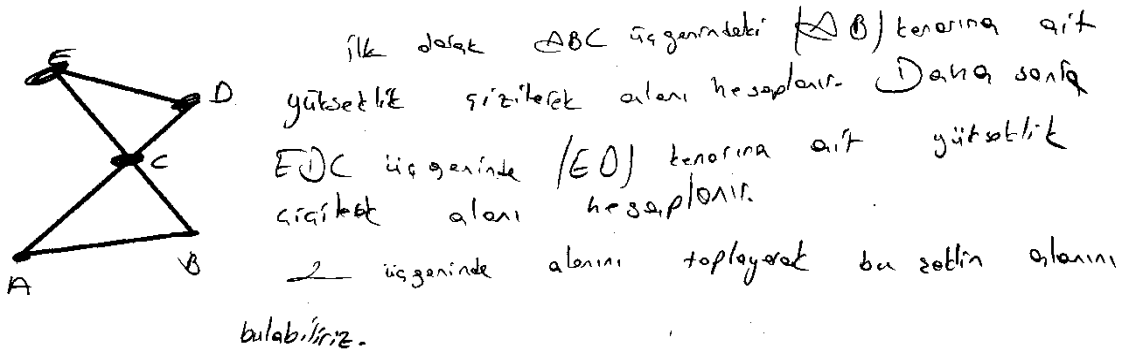 E
D
C
A
B
ilk olarak ABC üçgenindeki |AB| kenarına ait
yükseklik çizilerek alanı hesaplanır. Daha sonra
EDC üçgeninde |ED| kenarına ait yükseklik
çizilerek alanı hesaplanır.
2 üçgeninde alanını toplayarak bu şeklin alanını
bulabiliriz.